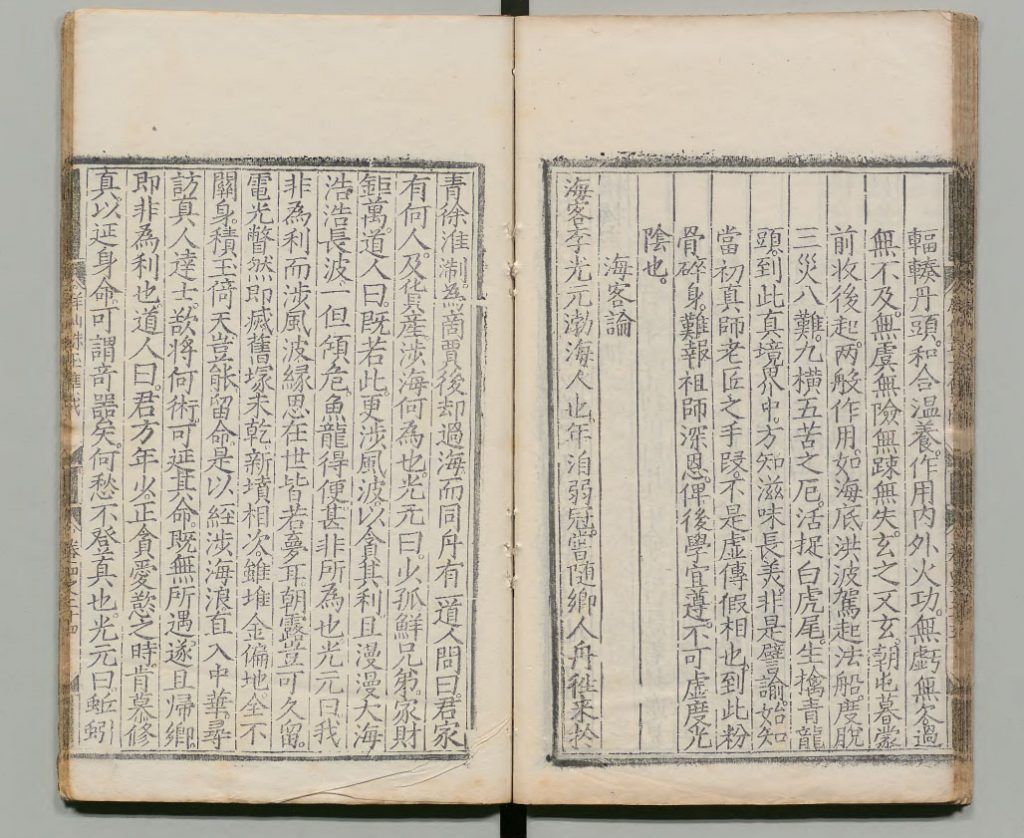 輻輳丹頭。和合温養。作用内外火功。無虧無欠。過
無不及。無虞無險無踈無失。玄之又玄。朝屯暮蒙
前收後起。两般作用。如海底洪波駕起法船。度脱
三災八難。九横五苦之厄。活捉白虎尾。生擒青龍
頭。到此真境界中。方知滋味長美。非是譬諭。始知
當初真師老匠之手段。不是虚傳假相也。到此粉
骨碎身。難報祖師深恩。俾後學宜遵。不可虚度光
陰也。
海客論
海客李光元渤海人也。年洎弱冠。嘗随鄉人舟往来於
青徐淮淛。為商賈後却過海而同舟有一道人問曰。君家
有何人。及貨産涉海何為也。光元曰。少孤鮮兄弟。家財
鉅萬。道人曰。既若此。更涉風波。以貪其利。且漫漫大海
浩浩長波。一但傾危。魚龍得便。甚非所為也光元曰我
非為利而涉風波。緣思在世皆若夢耳朝露豈可久留。
電光瞥然即滅舊塚未乾新墳相次。雖堆金徧地。全不
關身。積玉倚天豈能留命。是以經涉海浪直入中華。尋
訪真人達士。欲將何術。可延其命。既無所遇遂且歸鄉。
即非為利也。道人曰。君方年少。正貪愛慾之時。肯慕修
真。以延身命。可謂奇器矣。何愁不登真也。光元曰。蚯蚓